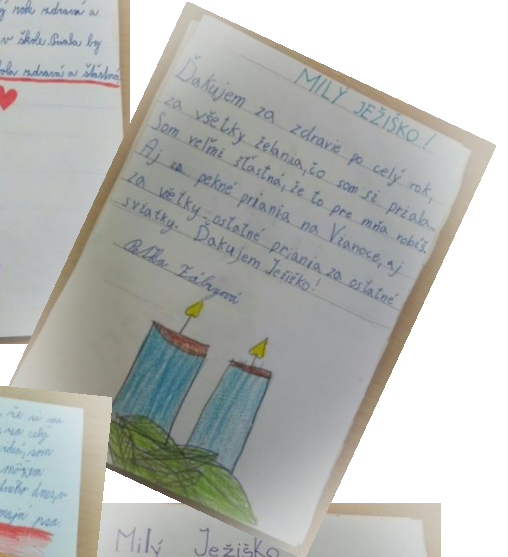 rok zdravá a
v škole. Priala by
bola zdravá a šťastná
MILÝ JEŽIŠKO!
Ďakujem za zdravie po celý rok,
za všetky želania, čo som si priala.
Som veľmi šťastná, že to pre mňa robíš.
Aj za pekné priania na Vianoce, aj
za všetky ostatné priania za ostatné
sviatky. Ďakujem Ježiško!
že si
celý
som
môžem
Milý Ježiško